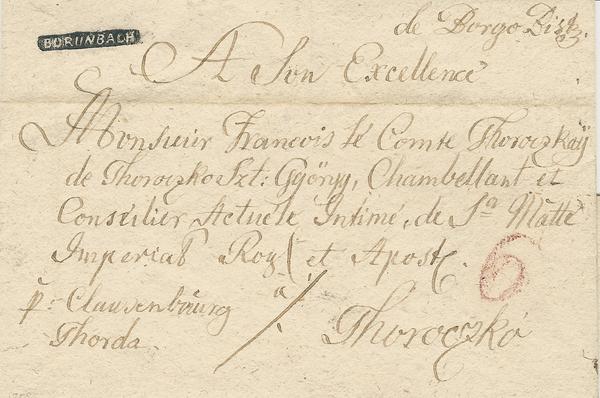 BORUNBACH
de Borgo
A Son Excellence
Monsieur Francois le Comte Thoroczkaÿ
de Thoroczko Szt: György, Chambellant et
Conseilier Actuele Intimé, de Sa Matte
Imperial Roy et Apost.
6
p. Clausenbourg
à
Thorda.
Thoroczkó